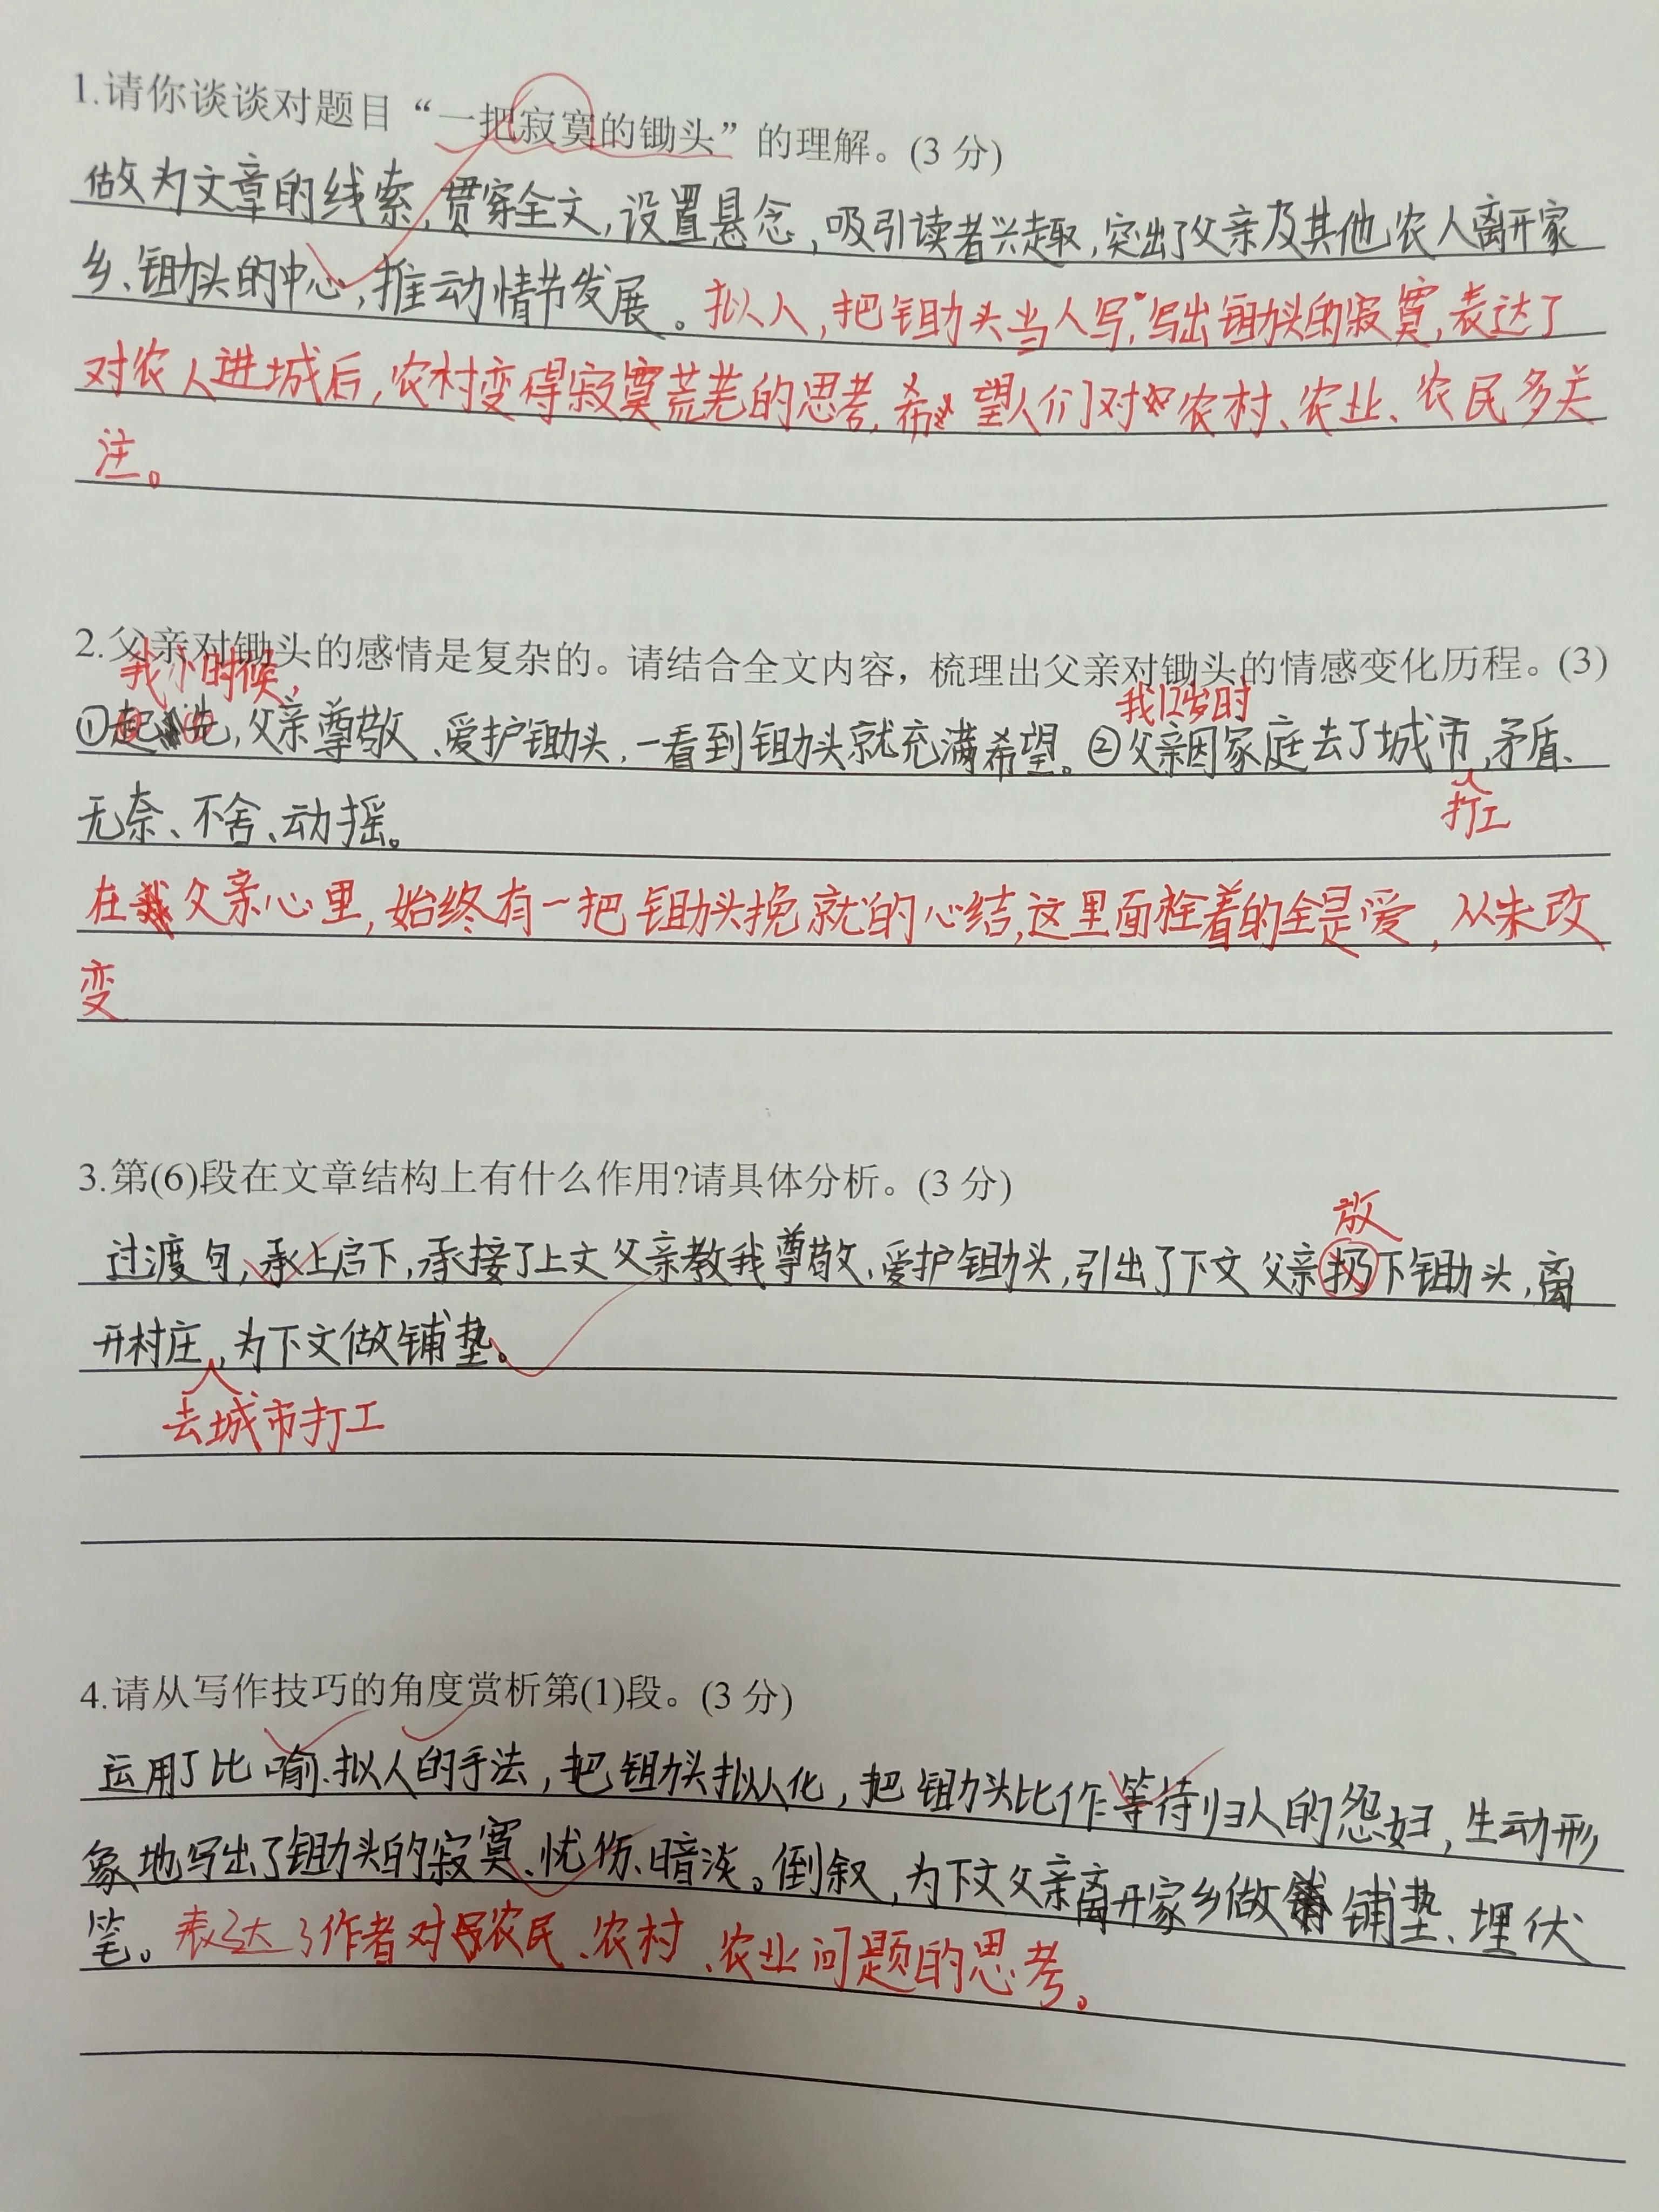 1.请你谈谈对题目“一把寂寞的锄头”的理解。(3 分)
做为文章的线索,贯穿全文,设置悬念,吸引读者兴趣,突出了父亲及其他农人离开家
乡、锄头的中心,推动情节发展。拟人,把锄头当人写,写出锄头的寂寞,表达了
对农人进城后,农村变得寂寞荒芜的思考,希望人们对农村、农业、农民多关
注。
2.父亲对锄头的感情是复杂的。请结合全文内容，梳理出父亲对锄头的情感变化历程。(3)
我小时候,
我12岁时
①起先,父亲尊敬、爱护锄头,一看到锄头就充满希望。②父亲因家庭去了城市,矛盾、
打工
无奈、不舍、动摇。
在父亲心里,始终有一把锄头挽就的心结,这里面栓着的全是爱,从未改
变
3.第(6)段在文章结构上有什么作用?请具体分析。(3 分)
放
过渡句,承上启下,承接了上文父亲教我尊敬、爱护锄头,引出了下文父亲扔下锄头,离
开村庄,为下文做铺垫。
去城市打工
4.请从写作技巧的角度赏析第(1)段。(3 分)
运用了比喻、拟人的手法,把锄头拟人化,把锄头比作等待归人的怨妇,生动形
象地写出了锄头的寂寞、忧伤、暗淡。倒叙,为下文父亲离开家乡做铺垫、埋伏
笔。表达了作者对农民、农村、农业问题的思考。